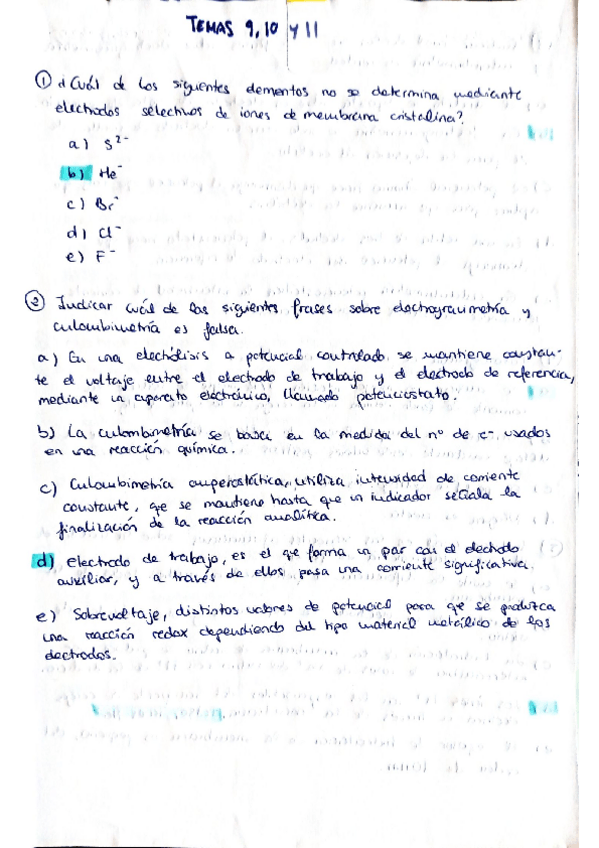 TEMAS 9, 10 y 11
① ¿Cuál de los siguientes elementos no se determina mediante
electrodos selectivos de iones de membrana cristalina?
a) S²⁻
b) He⁻
c) Br⁻
d) Cl⁻
e) F⁻
② Indicar cuál de las siguientes frases sobre electrogravimetría y
culombimetría es falsa.
a) En una electrólisis a potencial controlado se mantiene constan-
te el voltaje entre el electrodo de trabajo y el electrodo de referencia,
mediante un aparato electrónico, llamado potenciostato.
b) La culombimetría se basa en la medida del nº de e⁻ usados
en una reacción química.
c) Culombimetría amperostática, utiliza intensidad de corriente
constante, que se mantiene hasta que un indicador señala la
finalización de la reacción analítica.
d) electrodo de trabajo, es el que forma un par con el electrodo
auxiliar, y a través de ellos pasa una corriente significativa.
e) Sobrevoltaje, distintos valores de potencial para que se produzca
una reacción redox dependiendo del tipo material metálico de los
electrodos.